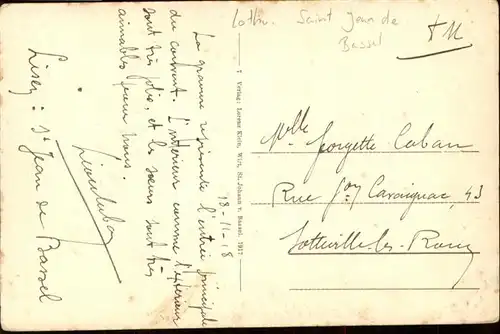 Lothr. Saint Jean de
Bassel
FM
18-11-18
La gravure représente l'entrée principale
du couvent. L'intérieur comme l'extérieur
sont très jolis, et les sœurs sont très
aimables pour nous.
Lisez : St Jean de Bassel
7 Verlag: Lorenz Klein, Wirt, St. Johann v. Bassel. 1917
Mlle Georgette Caban
Rue Gal Cavaignac, 43
Sotteville-les-Rouen